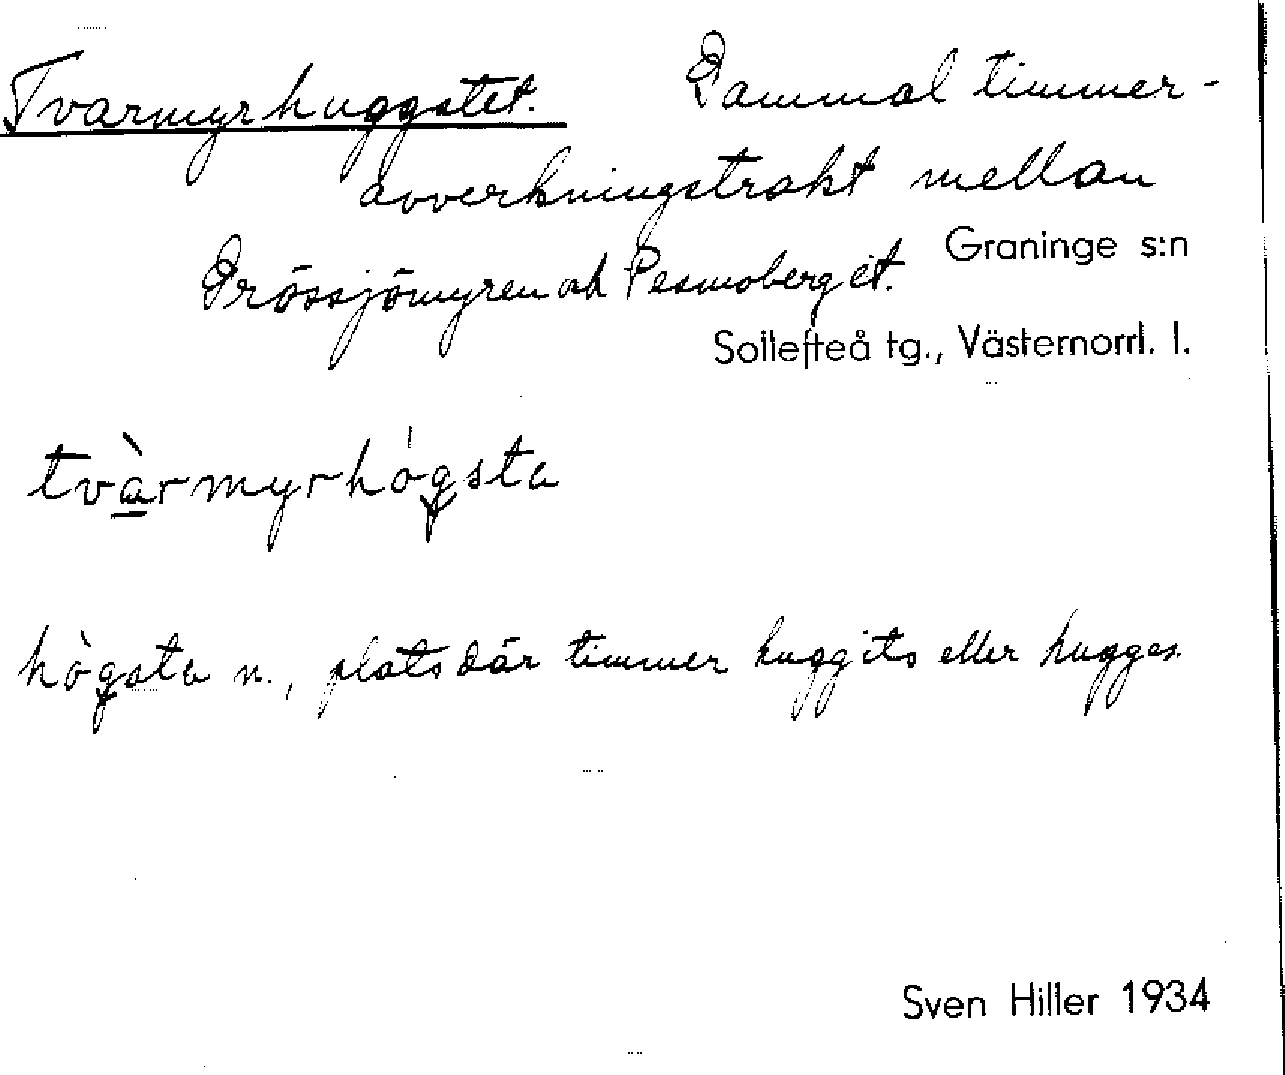 Tvarmyrhuggstet. Gammal timmer-
avverkningstrakt mellan
Grössjömyren och Pesmoberget.
Graninge s:n
Sollefteå tg., Västernorrl. l.
tvàrmyrhógsta
hògsta n., plats där timmer huggits eller hugges.
Sven Hiller 1934